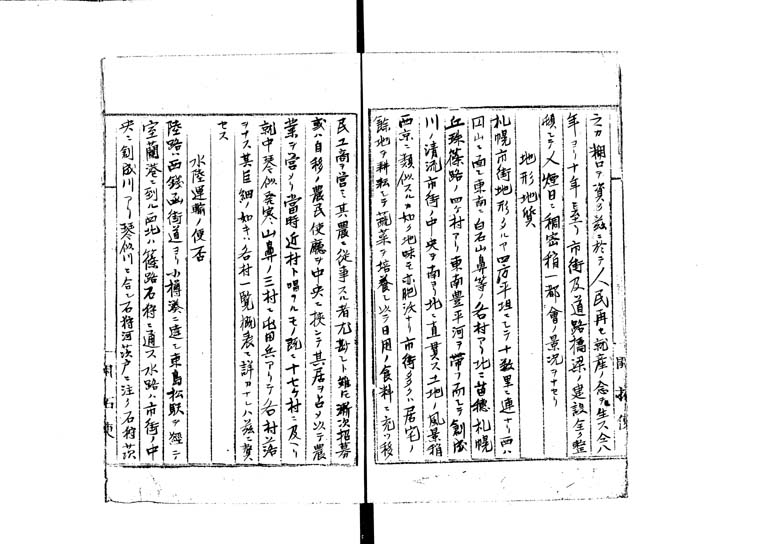 之カ糊口ヲ資ク茲ニ於テ人民再ヒ就産ノ念ヲ生ス今ハ
年ヨリ十年ニ至リ市街及道路橋梁ノ建設全ク整
頓シテ人煙日ニ稠密稍一都會ノ景況ヲナセリ
地形地質
札幌市街地形タルヤ四方平坦ニシテ十数里ニ連ナリ西ハ
円山ニ面シ東南ニ白石山鼻等ノ各村アリ北ニ苗穂札幌
丘珠篠路ノ四ケ村アリ東南豊平河ヲ帯フ而シテ創成
川ノ清流市街ノ中央ヲ南ヨリ北ニ直貫ス土地ノ風景稍
西京ニ類似スルカ如ク地味モ亦肥沃ナリ市街多クハ居宅ノ
餘地ヲ耕耘シテ蔬菜ヲ培養シ以テ日用ノ食料ニ充ツ移
民工商ヲ営ミ其農ニ従事スル者尤尠シト雖𪜈漸次招募
或ハ自移ノ農民使廳ヲ中央ニ挟ミテ其居ヲ占メ以テ農
業ヲ営メリ當時近村ト唱フルモノ既ニ十七ケ村ニ及ヘリ
就中琴似発寒山鼻ノ三村ニ屯田兵アリテ各村落
ヲナス其巨細ノ如キハ各村一覧概表ニ詳カナレハ茲ニ贅
セス
水陸運輸ノ便否
陸路ハ西錢函街道ヨリ小樽湊ニ達シ東島松駅ヲ経テ
室蘭港ニ到ル西北ハ篠路石狩ニ通ス水路ハ市街ノ中
央ニ創成川アリ琴似川ト合シ石狩河茨戸ニ注ク石狩茨
開拓使
開拓使